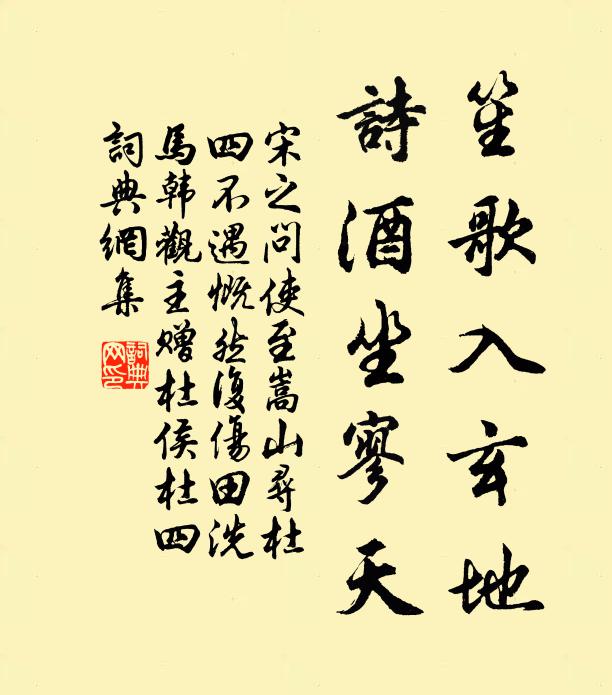 笙歌入玄地
詩酒坐寥天
宋之問使至嵩山尋杜
四不遇慨然復傷田洗
馬韓觀主贈杜侯杜四
詞典網集
詞典
网印